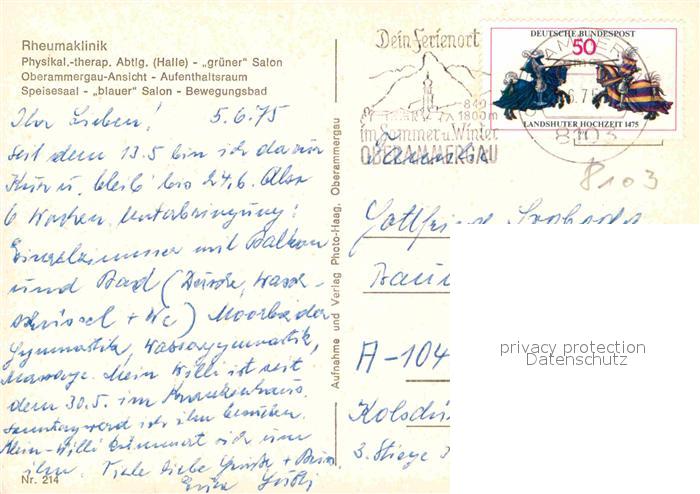 Rheumaklinik
Physikal.-therap. Abtlg. (Halle) - „grüner" Salon
Oberammergau-Ansicht - Aufenthaltsraum
Speisesaal - „blauer" Salon - Bewegungsbad
Ihr Lieben! 5.6.75
seit dem 13.5 bin ich da zur
Kur u. bleib bis 24.6. Also
6 Wochen. Unterbringung:
Einzelzimmer mit Balkon
und Bad (Dusche, Wasch-
schüssel + Wc) Moorbäder
Gymnastik, Wassergymnastik,
Massage. Mein Willi ist seit
dem 30.5. im Krankenhaus.
Sonntag werd ich ihn besuchen.
Klein-Willi kümmert sich um
ihn. Viele liebe Grüße + Bussi
Erika
Nr. 214
Aufnahme und Verlag Photo-Haag, Oberammergau
Dein Ferienort
840
1800m
im Sommer u. Winter
OBERAMMERGAU
DEUTSCHE BUNDESPOST
50
LANDSHUTER HOCHZEIT 1475
8103
8103
Gottfried Svoboda
A-104
3. Stiege
privacy protection
Datenschutz